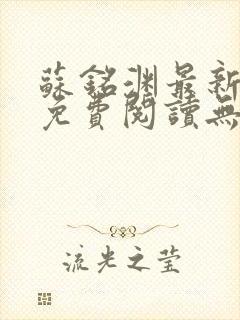 蘇銘淵最新
免費閱讀無
流光之莹